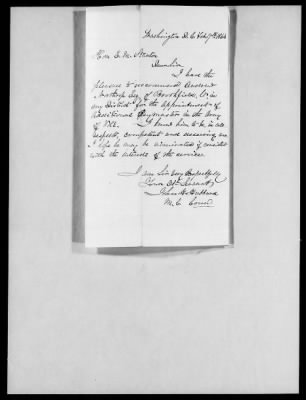 Washington D.C. Feb 9th 1864
Hon E. M. Stanton
Dear Sir
I have the
pleasure to recommend
Northrop Esq. of Brookfield, Ct in
my District for the appointment of
Additional Paymaster in the Army
of U.S. I trust him to be in all
respects, competent and deserving and
I hope he may be nominated if consistent
with the interests of the service.
I am Sir Very Respectfully
Your Obt Servant
John H. Hubbard
M.C. Conn